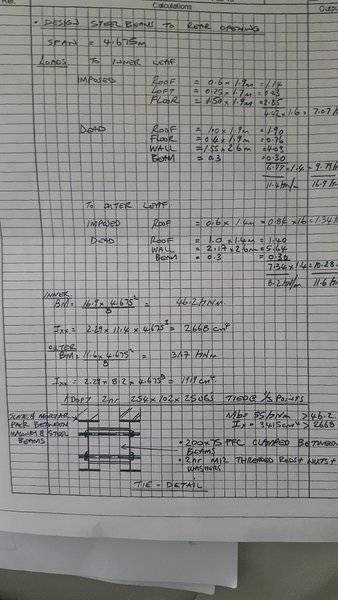 Calculations
Outpu
• DESIGN STEEL BEAMS TO REAR OPENING
SPAN = 4.675m
LOADS TO INNER LEAF
IMPOSED ROOF = 0.6 x 1.9m = 1.14
LOFT = 0.25 x 1.7m = 0.43
FLOOR = 1.50 x 1.9m = 2.85
4.42 x 1.6 = 7.07
DEAD ROOF = 1.0 x 1.9m = 1.90
FLOOR = 0.4 x 1.9m = 0.76
WALL = 1.55 x 2.6m = 4.03
BEAM = 0.3 = 0.30
6.99 x 1.4 = 9.79
11.4 kN/m 16.9
TO OUTER LEAF
IMPOSED ROOF = 0.6 x 1.4m = 0.84 x 1.6 = 1.34
DEAD ROOF = 1.0 x 1.4m = 1.40
WALL = 2.17 x 2.6m = 5.64
BEAM = 0.3 = 0.30
7.34 x 1.4 = 10.28
8.2 kN/m 11.6
INNER
BM = 16.9 x 4.675² / 8 = 46.2 kNm
Ixx = 2.29 x 11.4 x 4.675³ = 2668 cm⁴
OUTER
BM = 11.6 x 4.675² / 8 = 31.7 kNm
Ixx = 2.29 x 8.2 x 4.675³ = 1919 cm⁴
ADOPT 2nr 254 x 102 x 25 UBS TIED @ 1/3 POINTS
Mb = 55 kNm > 46.2
Ix = 3415 cm⁴ > 2668
SLATE & MORTAR
PACK BETWEEN
STEEL
BEAMS
• 200 x 75 PFC CLAMPED BETWEEN
BEAMS
• 2nr M12 THREADED RODS + NUTS +
WASHERS
TIE - DETAIL